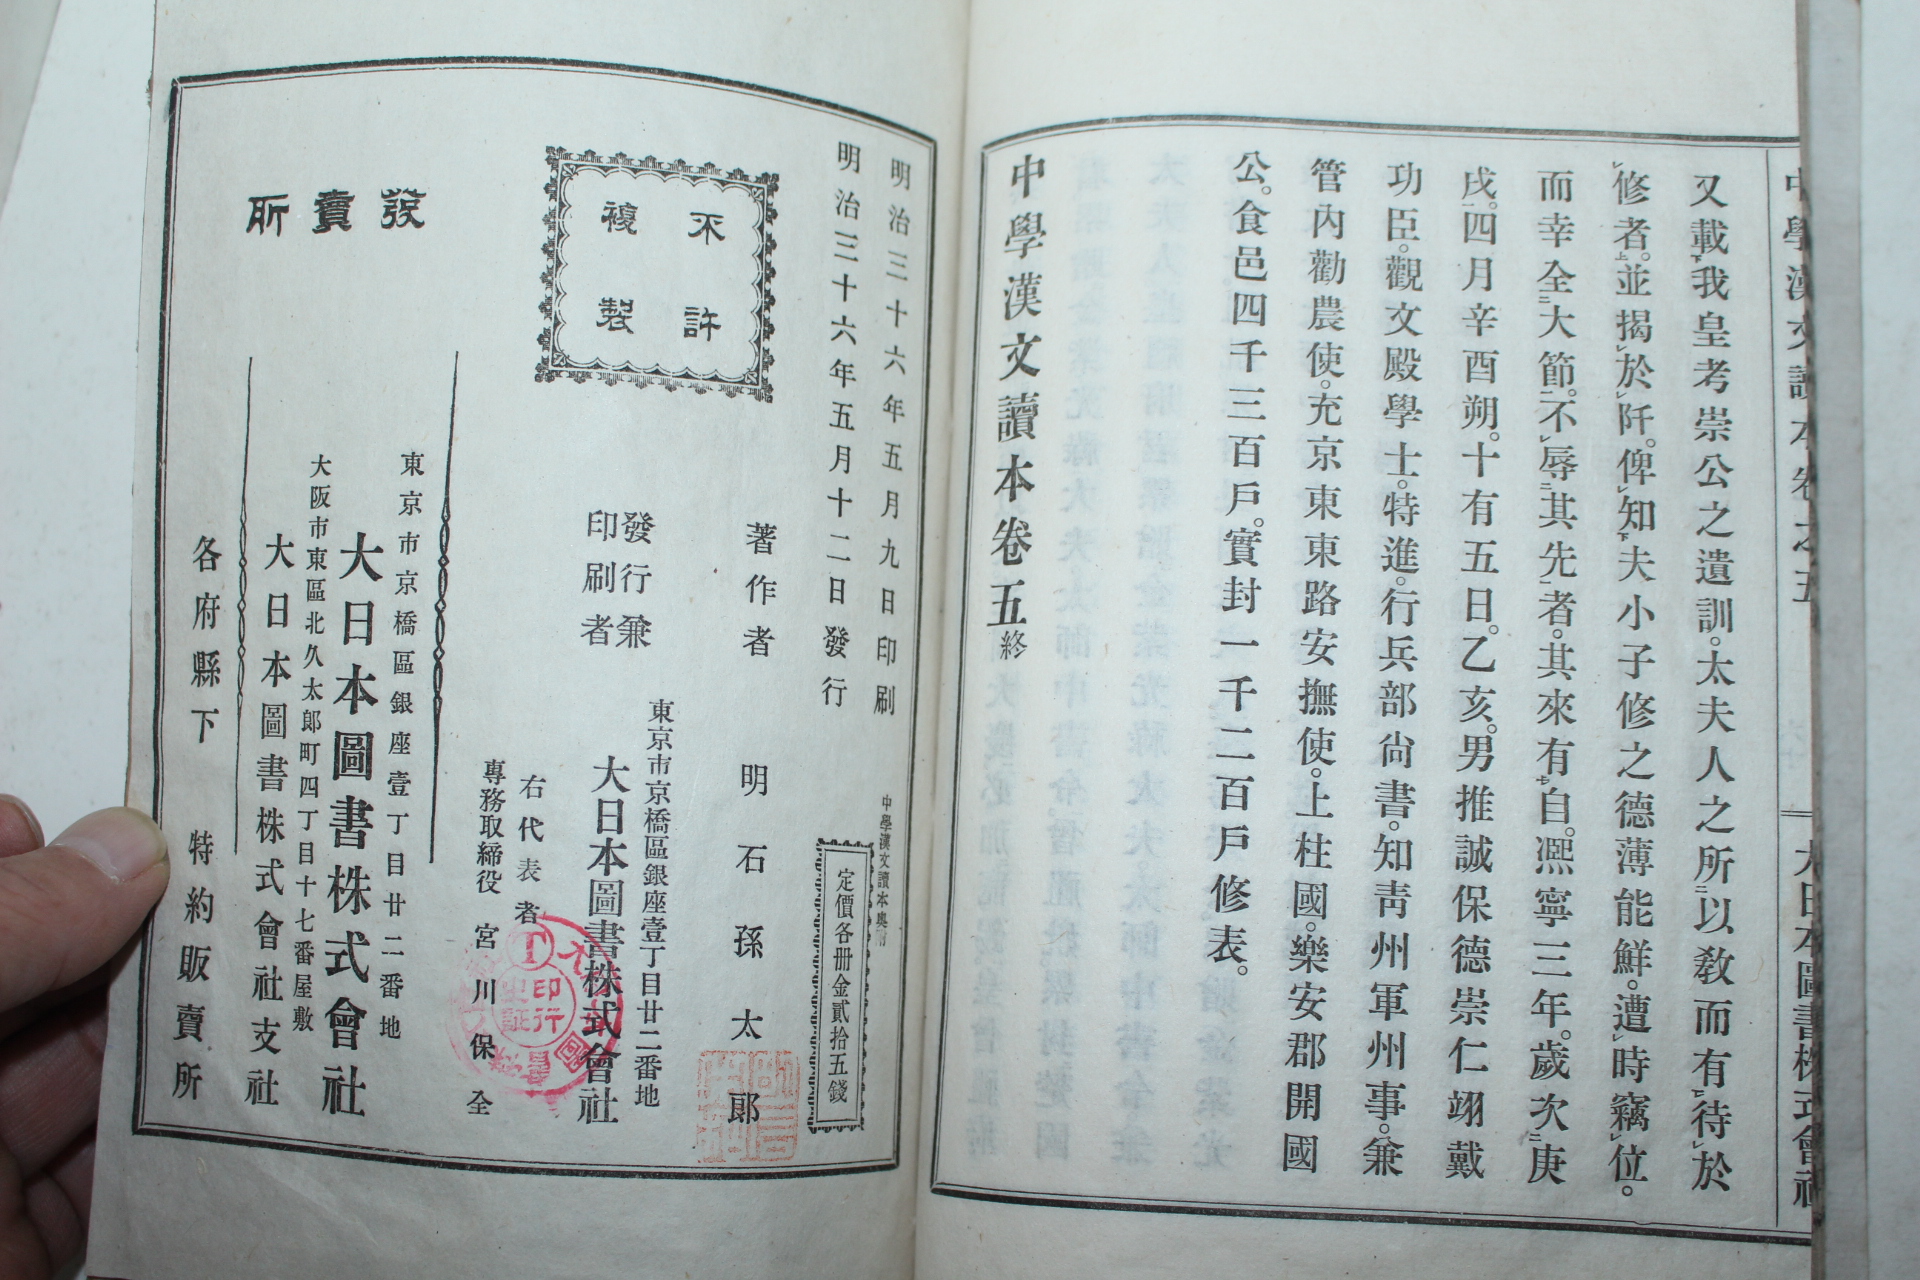 中學漢文讀本卷之五
大日本圖書株式會社
又載我皇考崇公之遺訓。太夫人之所以敎而有待於
修者。並揭於阡。俾知夫小子修之德薄能鮮。遭時竊位。
而幸全大節。不辱其先者。其來有自。熙寧三年。歲次庚
戌。四月辛酉朔。十有五日。乙亥。男推誠保德崇仁翊戴
功臣。觀文殿學士。特進。行兵部尙書。知靑州軍州事。兼
管內勸農使。充京東東路安撫使。上柱國。樂安郡開國
公。食邑四千三百戶。實封一千二百戶修表。
中學漢文讀本卷五終
中學漢文讀本奧附
定價各册金貳拾五錢
明治三十六年五月九日印刷
明治三十六年五月十二日發行
不許
複製
著作者　明石孫太郎
發行兼
印刷者
東京市京橋區銀座壹丁目廿二番地
大日本圖書株式會社
右代表者
專務取締役　宮川保全
發賣所
東京市京橋區銀座壹丁目廿二番地
大日本圖書株式會社
大阪市東區北久太郎町四丁目十七番屋敷
大日本圖書株式會社支社
各府縣下　特約販賣所